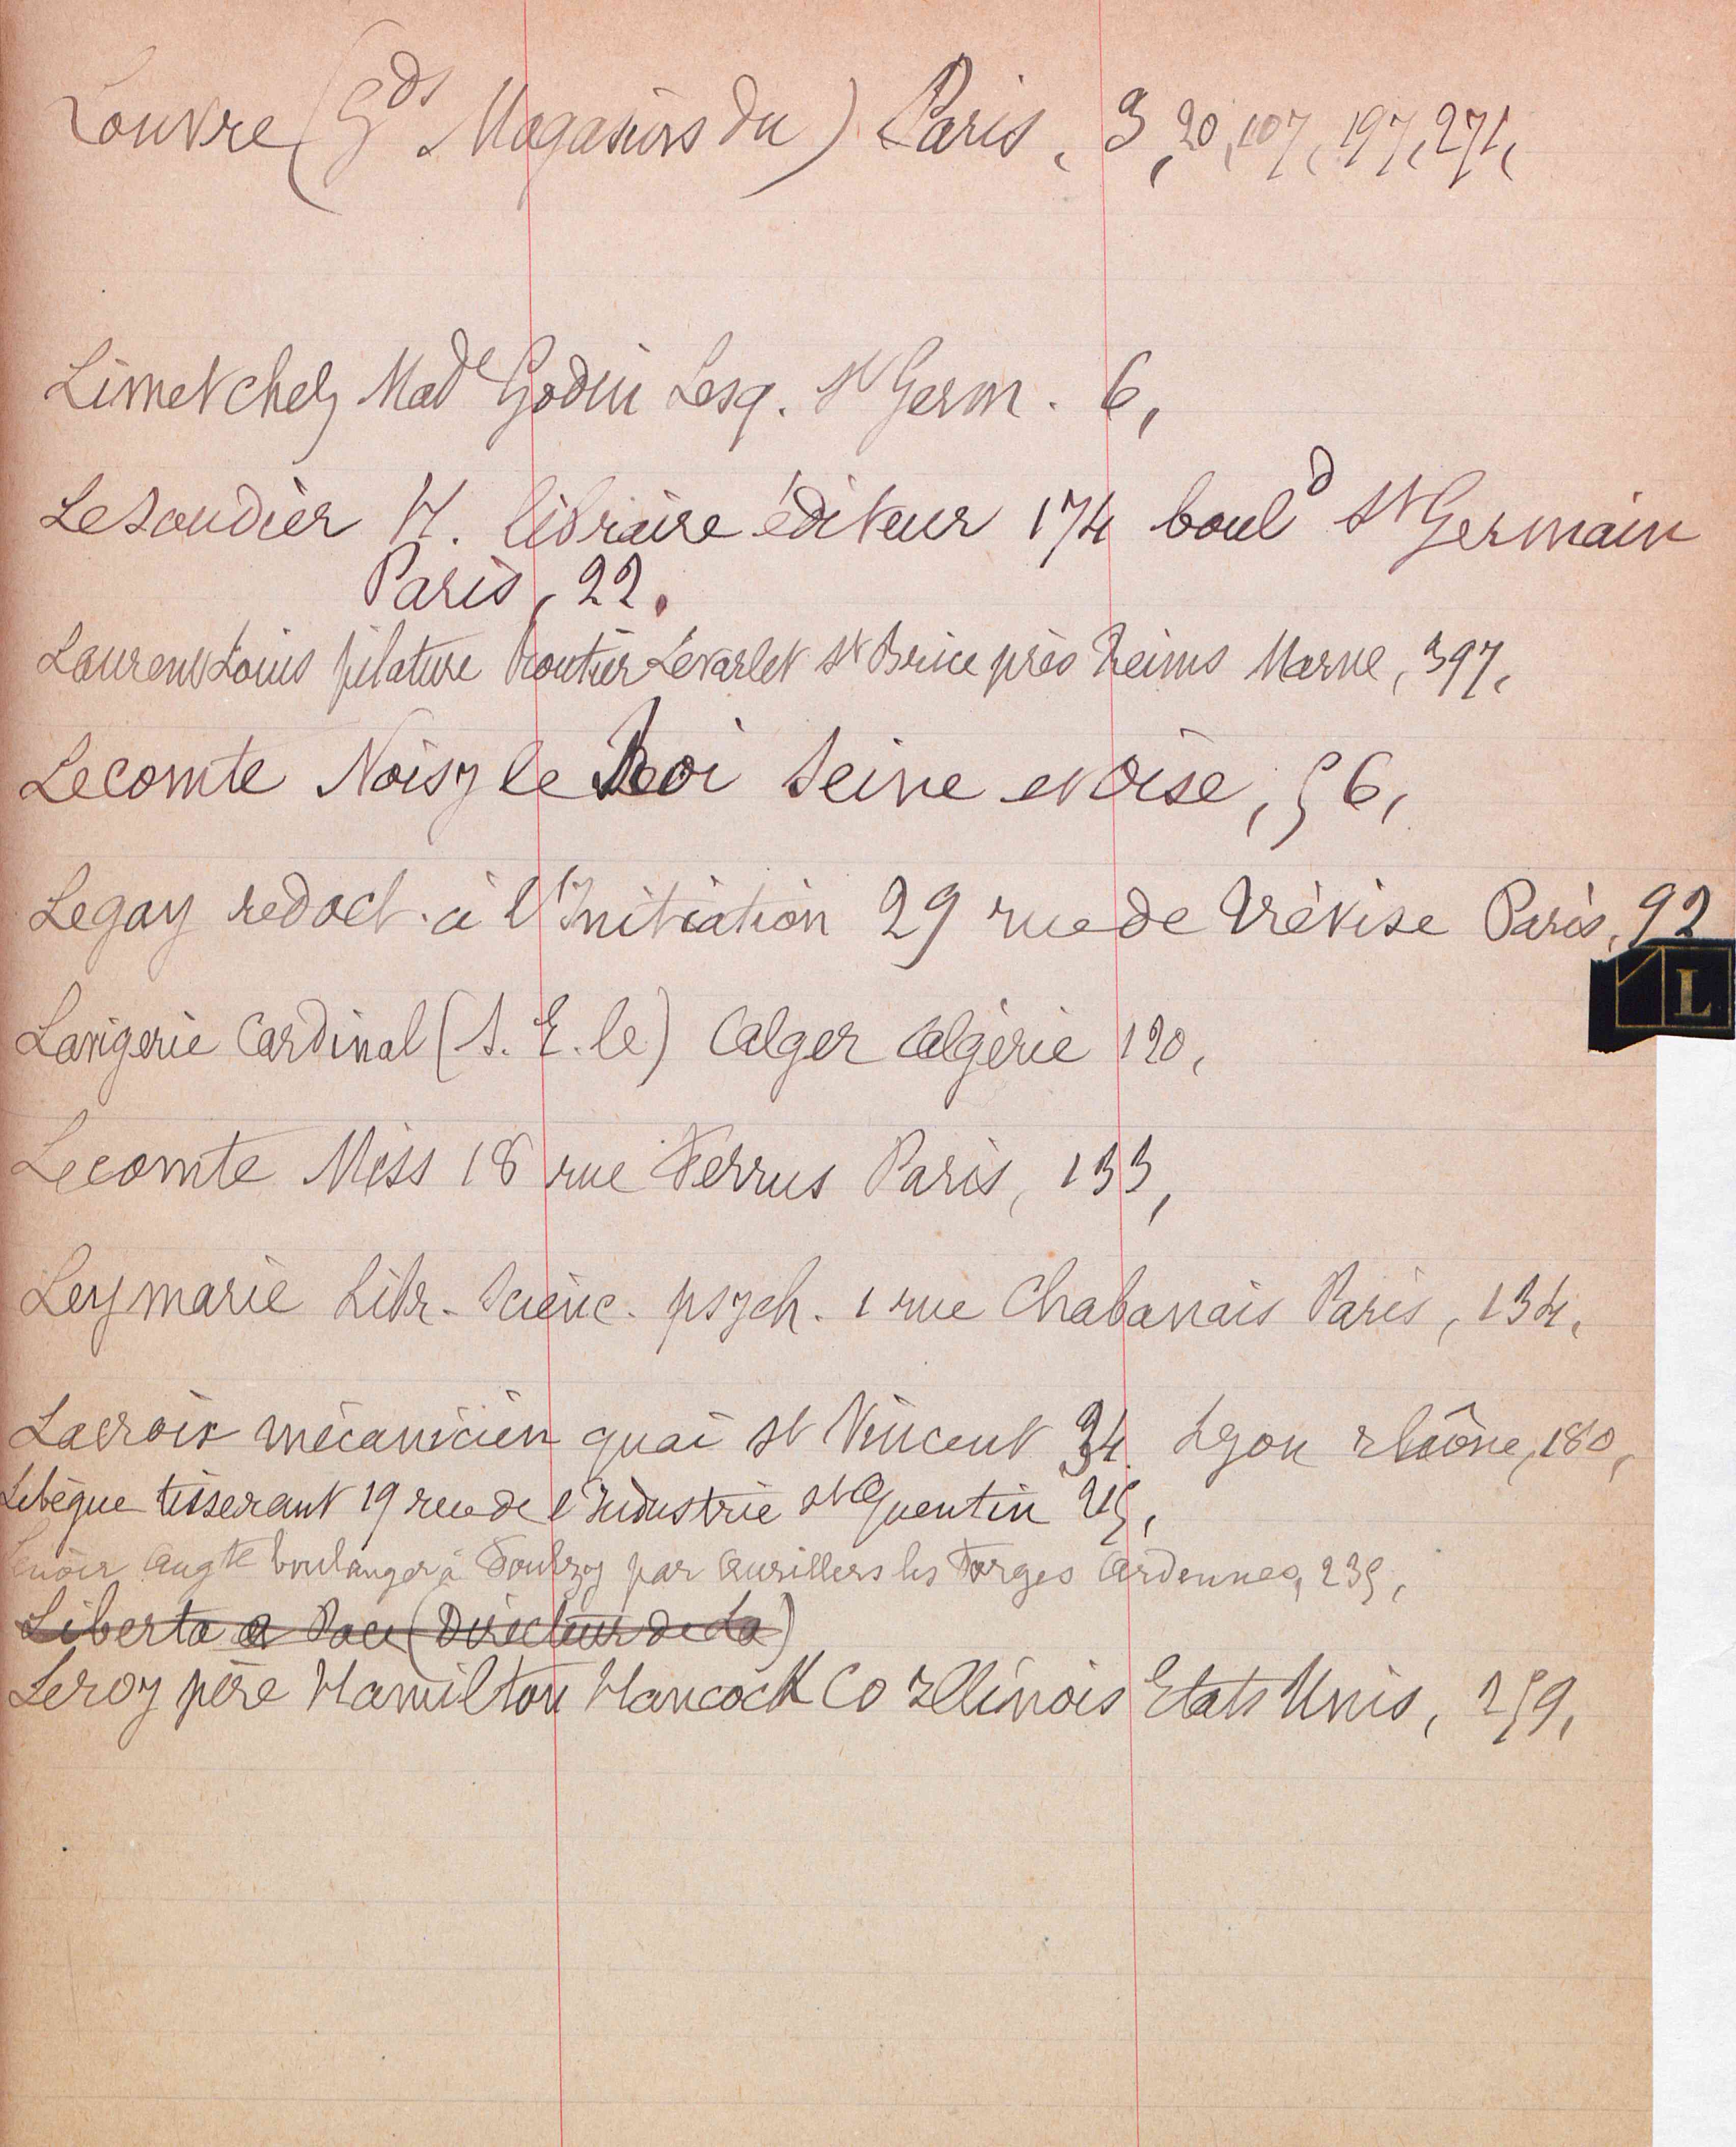 Louvre (Gds Magasins du) Paris, 3, 20, 107, 197, 271,
Limet chez Made Godin Lesq. St Germ. 6,
Lesoudier H. libraire éditeur 174 bould St Germain
Paris, 22.
Laurent Louis filature Routier Levarlet St Brice près Reims Marne, 397,
Lecomte Noisy le Roi Seine et Oise, 56,
Legay redact. à l'Initiation 29 rue de Trévise Paris, 92
L
Lavigerie Cardinal (S. E. le) Alger Algérie 120,
Lecomte Miss 18 rue Ferrus Paris, 133,
Leymarie Libr. Scienc. psych. 1 rue Chabanais Paris, 134,
Lacroix mécanicien quai St Vincent 34 Lyon rhône, 180,
Lebègue tisserant 19 rue de l'Industrie St Quentin 215,
Lenoir Augte boulanger à par les Forges Ardennes, 235,
Liberta e Pace (Directeur de La)
Leroy père Hamilton Hancock Co Illinois Etats Unis, 259,